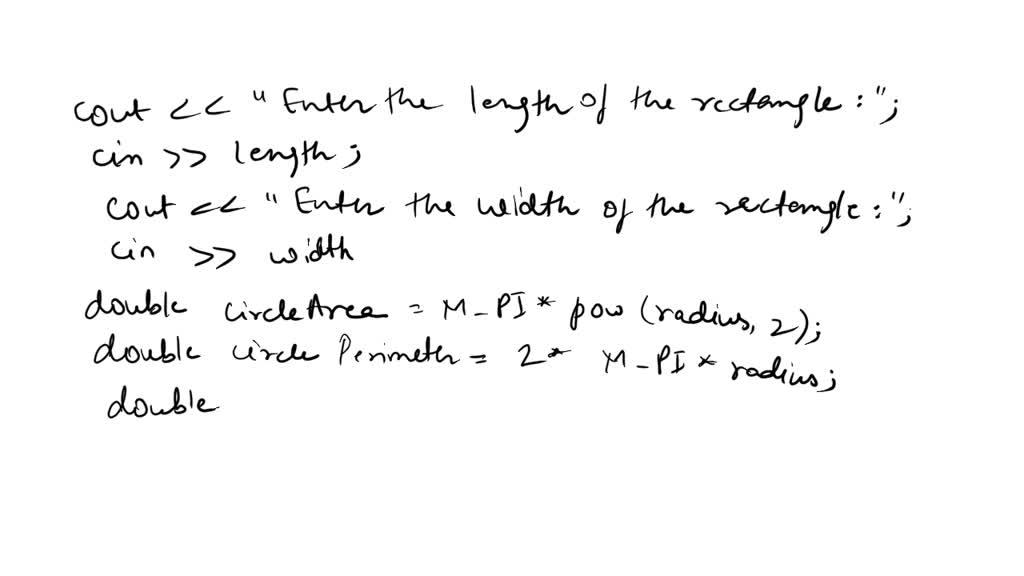 cout << "Enter the length of the rectangle :";
cin >> length;
cout << "Enter the width of the rectangle :";
cin >> width
double circleArea = M_PI * pow (radius, 2);
double circle Perimeter = 2 * M_PI * radius;
double